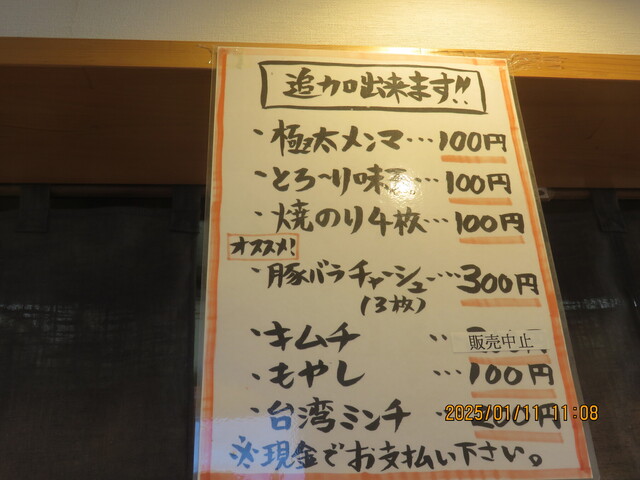 追加出来ます!!
・極太メンマ…100円
・とろ〜り味玉…100円
・焼のり4枚…100円
オススメ!
・豚バラチャーシュー…300円
(3枚)
・キムチ ‥ 販売中止
・もやし …100円
・台湾ミンチ 200円
※現金でお支払い下さい。
2025/01/11 11:08